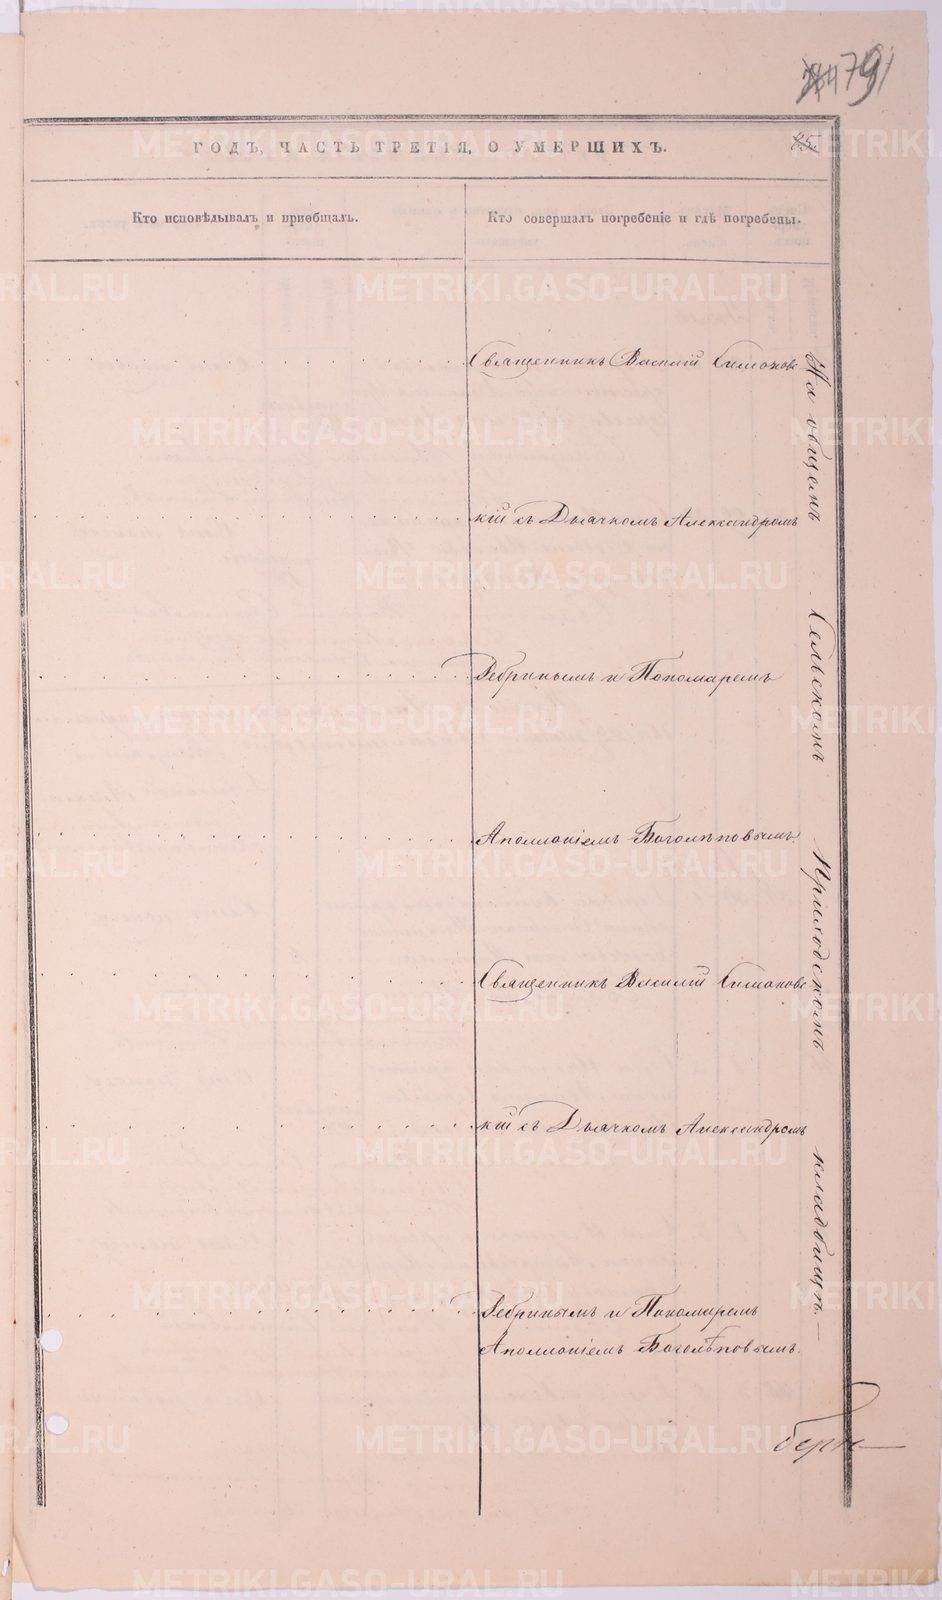 791
85.
ГОДЪ, ЧАСТЬ ТРЕТІЯ, О УМЕРШИХЪ.
Кто исповѣдывалъ и пріобщалъ.
Кто совершалъ погребеніе и гдѣ погребены.
Священникъ Василій Симонов
кій съ Дьячкомъ Александромъ
Ребринымъ и Пономаремъ
Аполлоніемъ Боголѣповымъ.
Священникъ Василій Симонов
кій съ Дьячкомъ Александромъ
Ребринымъ и Пономаремъ
Аполлоніемъ Боголѣповымъ.
На общемъ Сельскомъ Приходскомъ кладбищѣ.
METRIKI.GASO-URAL.RU